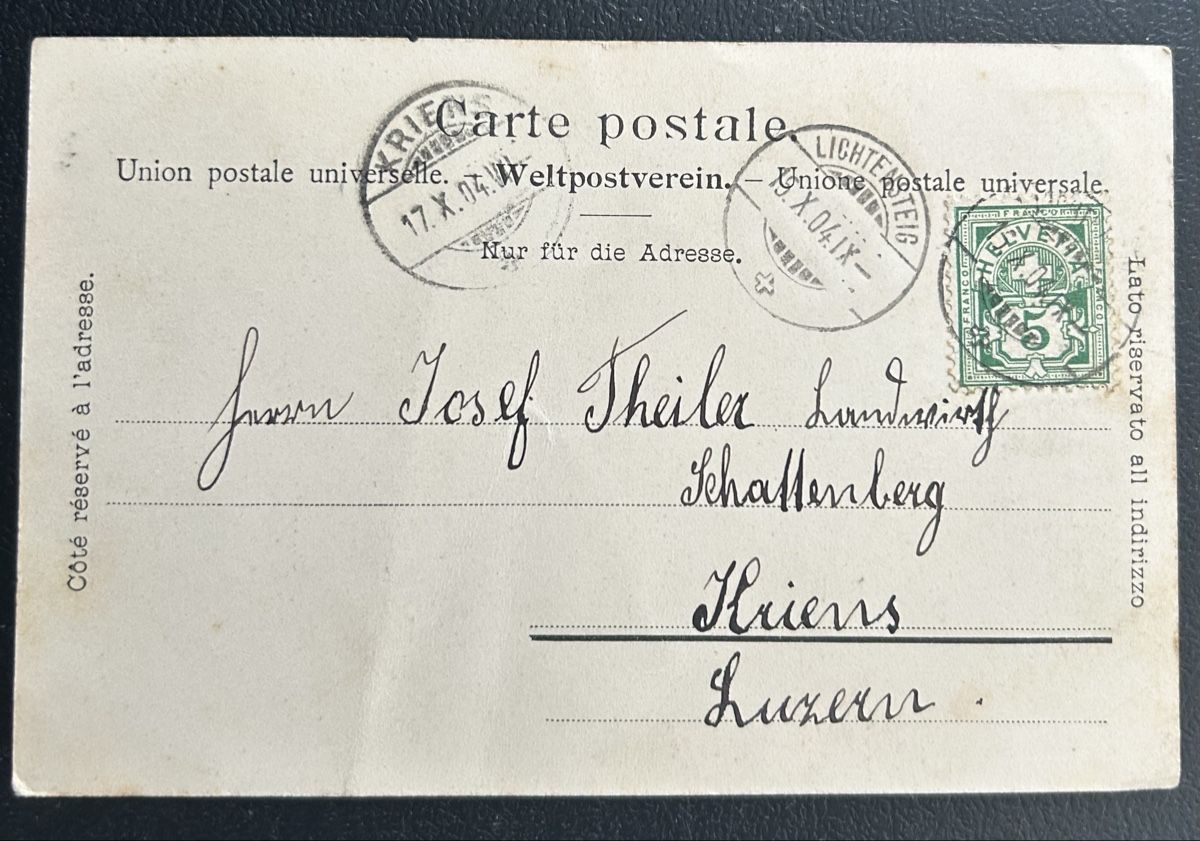 Carte postale.
Union postale universelle. – Weltpostverein. – Unione postale universale.
Nur für die Adresse.
KRIENS
17.X.04.VII
LICHTENSTEIG
19.X.04.IX–
FRANCO
HELVETIA
FRANCO
FRANCO
5
Côté réservé à l'adresse.
Lato riservato all indirizzo
Herrn Josef Theiler Landwirth
Schattenberg
Kriens
Luzern.